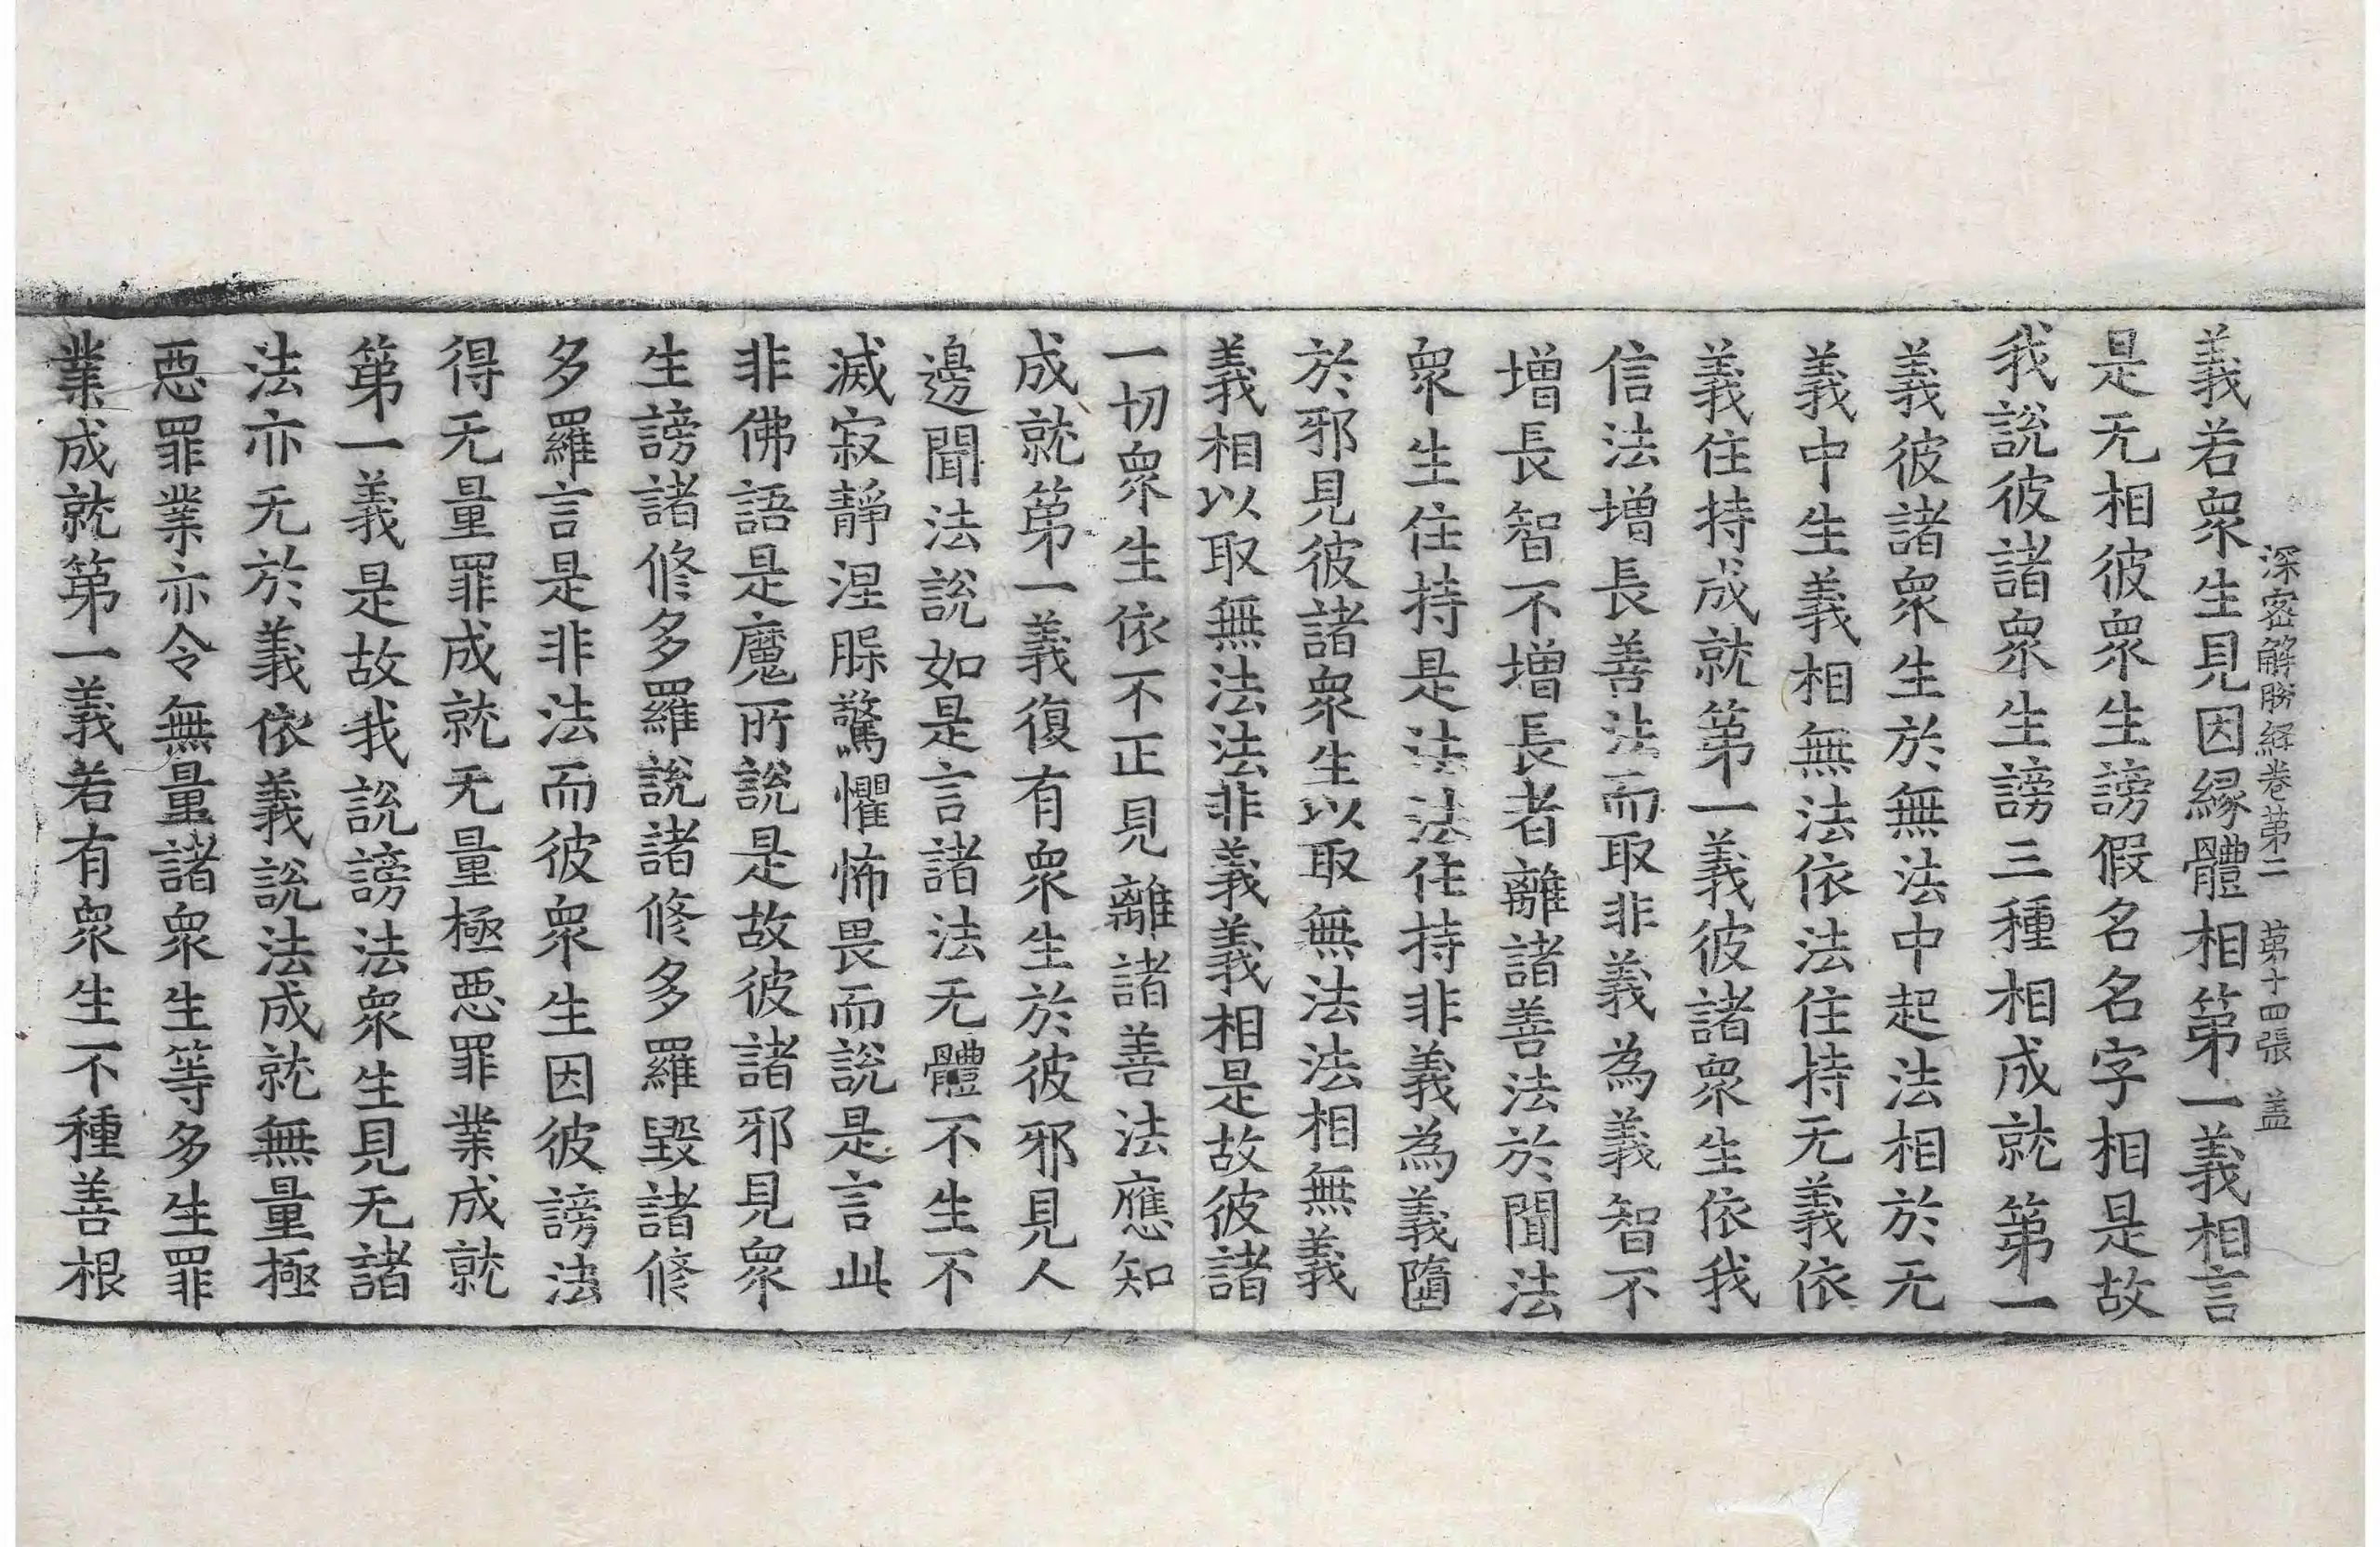 深密解脫経卷苐二　苐十四張　盖
義若衆生見因縁體相苐一義相言
是无相彼衆生謗假名名字相是故
我說彼諸衆生謗三種相成就苐一
義彼諸衆生於無法中起法相於无
義中生義相無法依法住持无義依
義住持成就苐一義彼諸衆生依我
信法增長善法而取非義為義智不
增長智不增長者離諸善法於聞法
衆生住持是法法住持非義為義隨
於邪見彼諸衆生以取無法法相無義
義相以取無法法非義義相是故彼諸
一切衆生依不正見離諸善法應知
成就苐一義復有衆生於彼邪見人
邊聞法說如是言諸法无體不生不
滅寂靜涅槃驚懼怖畏而說是言此
非佛語是魔所說是故彼諸邪見衆
生謗諸修多羅說諸修多羅毀諸修
多羅言是非法而彼衆生因彼謗法
得无量罪成就无量極惡罪業成就
苐一義是故我說謗法衆生見无諸
法亦无於義依義說法成就無量極
惡罪業亦令無量諸衆生等多生罪
業成就苐一義若有衆生不種善根